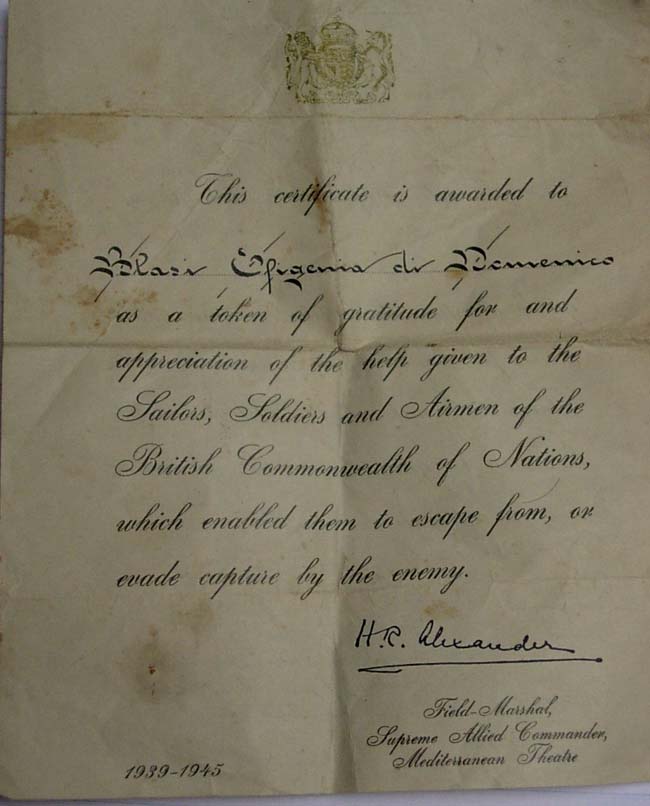 This certificate is awarded to
Blasi Efigenia di Domenico
as a token of gratitude for and
appreciation of the help given to the
Sailors, Soldiers and Airmen of the
British Commonwealth of Nations,
which enabled them to escape from, or
evade capture by the enemy.
H.R. Alexander
Field-Marshal,
Supreme Allied Commander,
Mediterranean Theatre
1939-1945